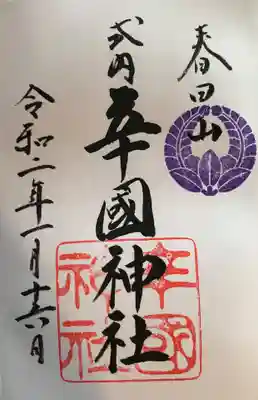 春日山
式内 辛國神社
辛國神社
令和二年一月十六日